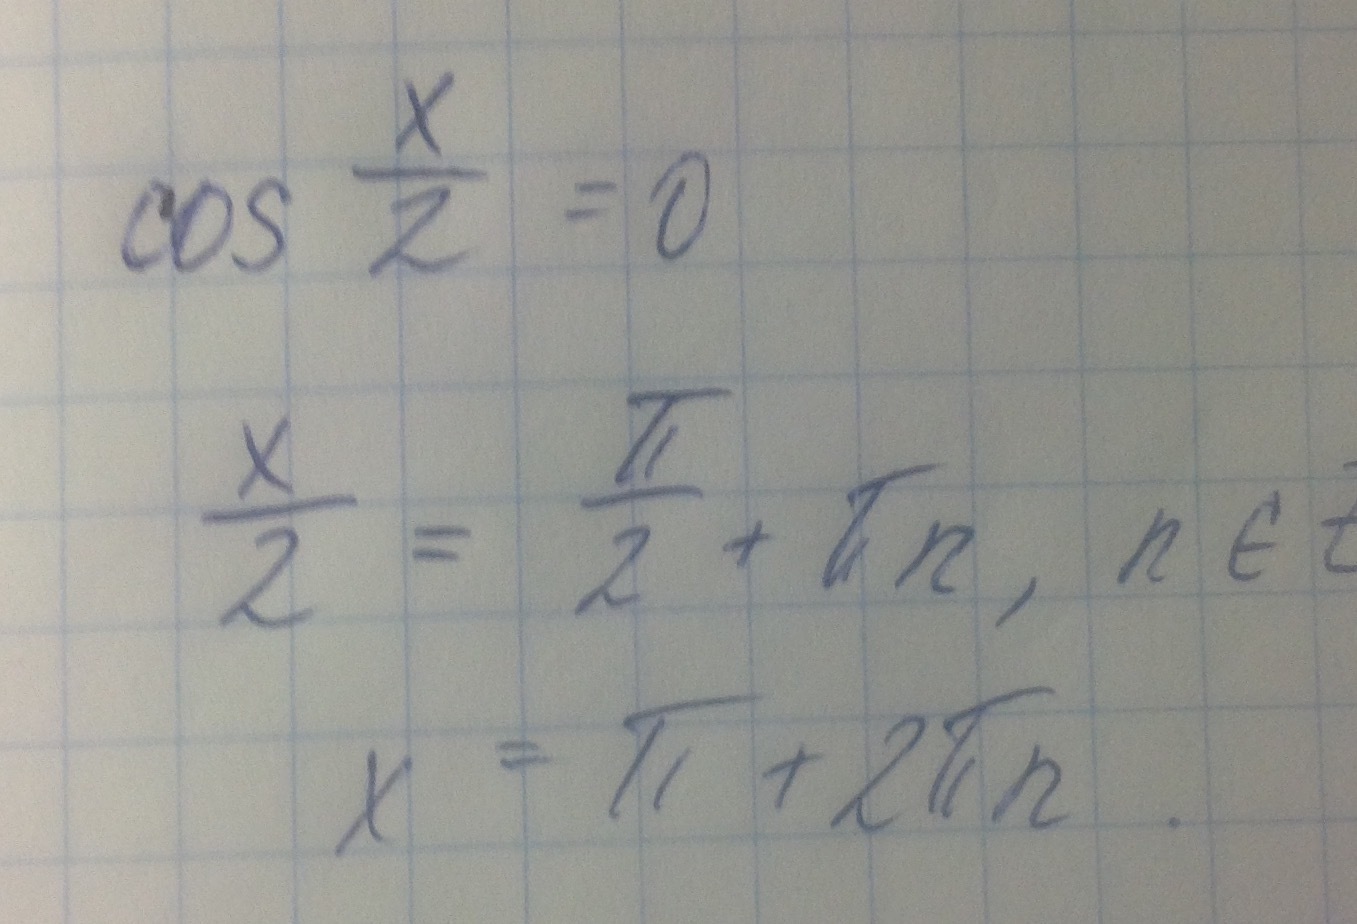 cos x/2 = 0
x/2 = π/2 + πn, n ∈ Z
x = π + 2πn.